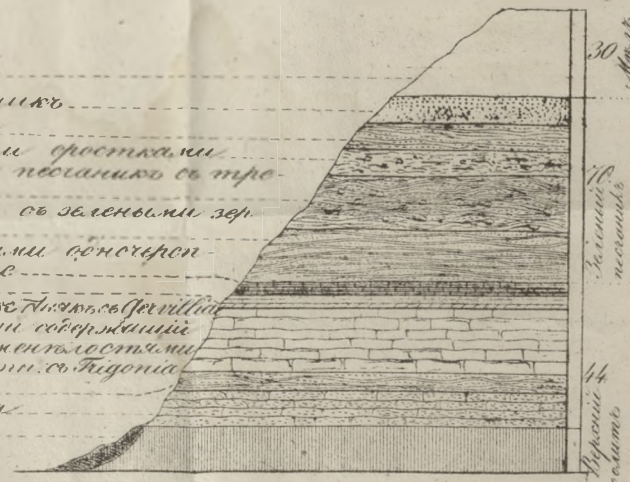 никъ
и сростками
песчаникъ съ тре
съ зелеными зер
ми одночереп
съ Gervillia
и содержащий
съ Trigonia
30
70
Зеленый
песчаникъ
44
Верхний
оолитъ